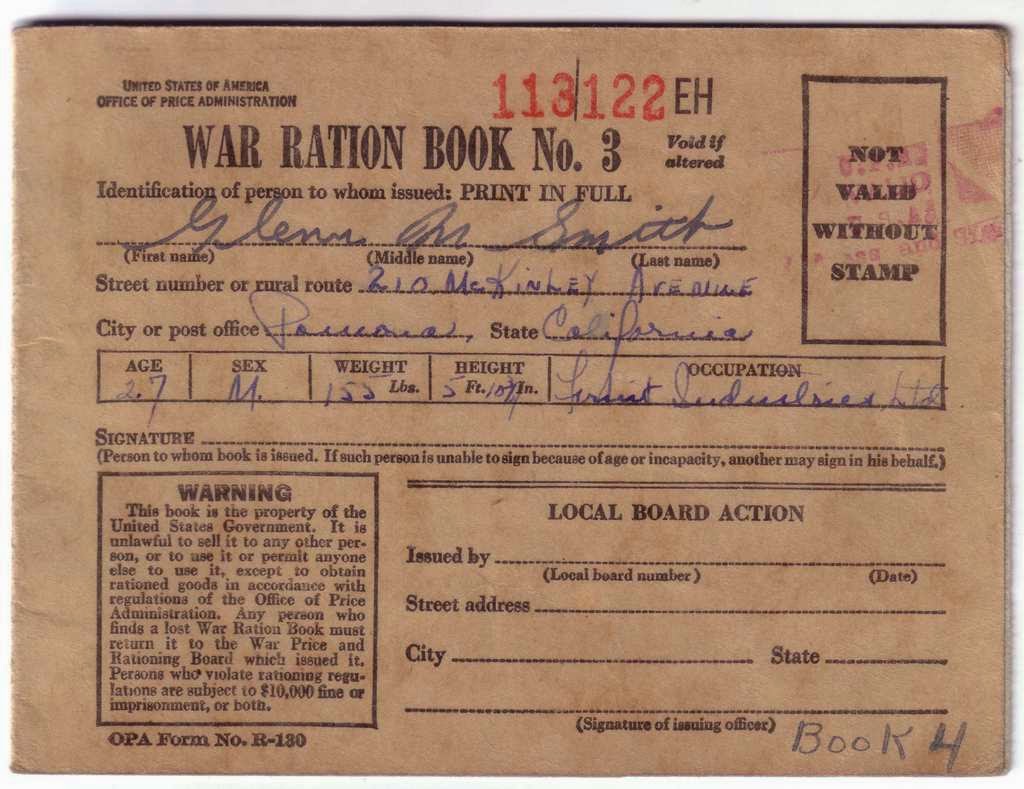 UNITED STATES OF AMERICA
OFFICE OF PRICE ADMINISTRATION
113122 EH
WAR RATION BOOK No. 3
Void if
altered
NOT
VALID
WITHOUT
STAMP
Identification of person to whom issued: PRINT IN FULL
Glenn M Smith
(First name) (Middle name) (Last name)
Street number or rural route 210 McKINLEY AVENUE
City or post office Pomona, State California
AGE SEX WEIGHT HEIGHT OCCUPATION
27 M. 155 Lbs. 5 Ft. In. Fruit Industries, Ltd
SIGNATURE
(Person to whom book is issued. If such person is unable to sign because of age or incapacity, another may sign in his behalf.)
WARNING
This book is the property of the
United States Government. It is
unlawful to sell it to any other per-
son, or to use it or permit anyone
else to use it, except to obtain
rationed goods in accordance with
regulations of the Office of Price
Administration. Any person who
finds a lost War Ration Book must
return it to the War Price and
Rationing Board which issued it.
Persons who violate rationing regu-
lations are subject to $10,000 fine or
imprisonment, or both.
OPA Form No. R-130
LOCAL BOARD ACTION
Issued by
(Local board number) (Date)
Street address
City State
(Signature of issuing officer)
BOOK 4